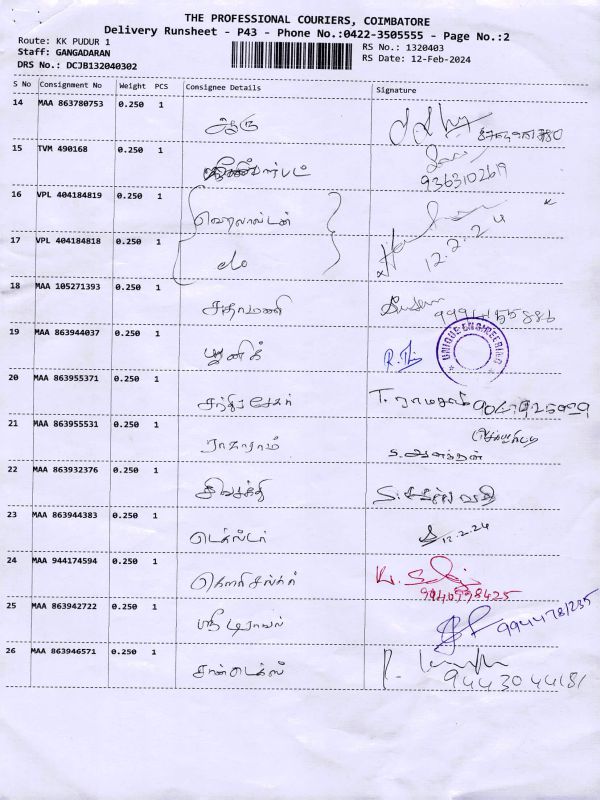 THE PROFESSIONAL COURIERS, COIMBATORE
Delivery Runsheet - P43 - Phone No.:0422-3505555 - Page No.:2
Route: KK PUDUR 1
RS No.: 1320403
Staff: GANGADARAN
RS Date: 12-Feb-2024
DRS No.: DCJB132040302
S No Consignment No Weight PCS Consignee Details Signature
14 MAA 863780753 0.250 1
15 TVM 490168 0.250 1
9363102619
16 VPL 404184819 0.250 1
17 VPL 404184818 0.250 1 do 12.2.24
18 MAA 105271393 0.250 1
சதாமணி
19 MAA 863944037 0.250 1
யூனிக்
UNIQUE ENGINEERING
20 MAA 863955371 0.250 1
சந்திரசேகர்
21 MAA 863955531 0.250 1
ராசாராம்
22 MAA 863932376 0.250 1
சிவசக்தி
23 MAA 863944383 0.250 1
12.2.24
24 MAA 944174594 0.250 1
கௌரிசங்கர்
25 MAA 863942722 0.250 1
9944781235
26 MAA 863946571 0.250 1
சான்டெக்ஸ்
9443044181